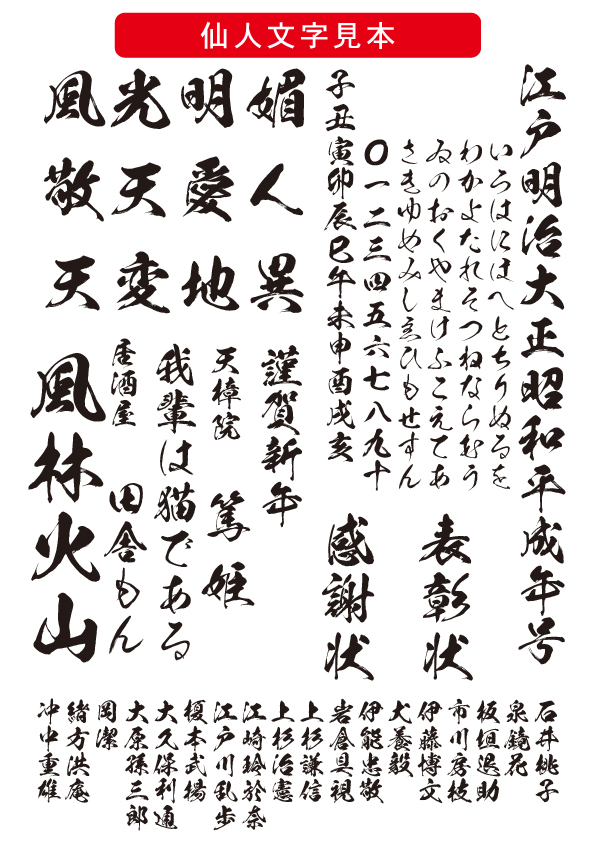 仙人文字見本
江戸明治大正昭和平成年号
いろはにほへとちりぬるを
わかよたれそつねならむう
ゐのおくやまけふこえてあ
さきゆめみしゑひもせすん
〇一二三四五六七八九十
子丑寅卯辰巳午未申酉戌亥
表彰状
感謝状
媚人異
明愛地
光天変
風敬天
謹賀新年
天樟院
篤姫
我輩は猫である
居酒屋
田舎もん
風林火山
石井桃子
泉鏡花
板垣退助
市川房枝
伊藤博文
犬養毅
伊能忠敬
岩倉具視
上杉謙信
上杉治憲
江崎玲於奈
江戸川乱歩
榎本武揚
大久保利通
大原孫三郎
岡潔
緒方洪庵
冲中重雄